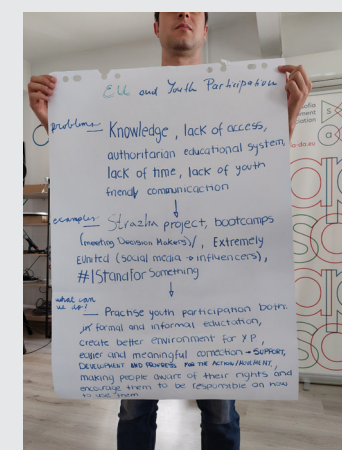 EU and Youth Participation
problems Knowledge, lack of access,
authoritarian educational system,
lack of time, lack of youth
friendly communicaction
examples Strazha project, bootcamps
(meeting Decision Makers)/, Extremely
EUnited (social media → influencers),
#IStandforSomething
what can
us do? Practise youth participation both
in formal and informal eductation,
create better environment for YP,
easier and meaningful connection → SUPPORT,
DEVELOPMENT AND PROGRESS FOR THE ACTION/MOVEMENT,
making people aware of their rights and
encourage them to be responsible on how
to use them
ofia
ment
ciation
a-do.eu